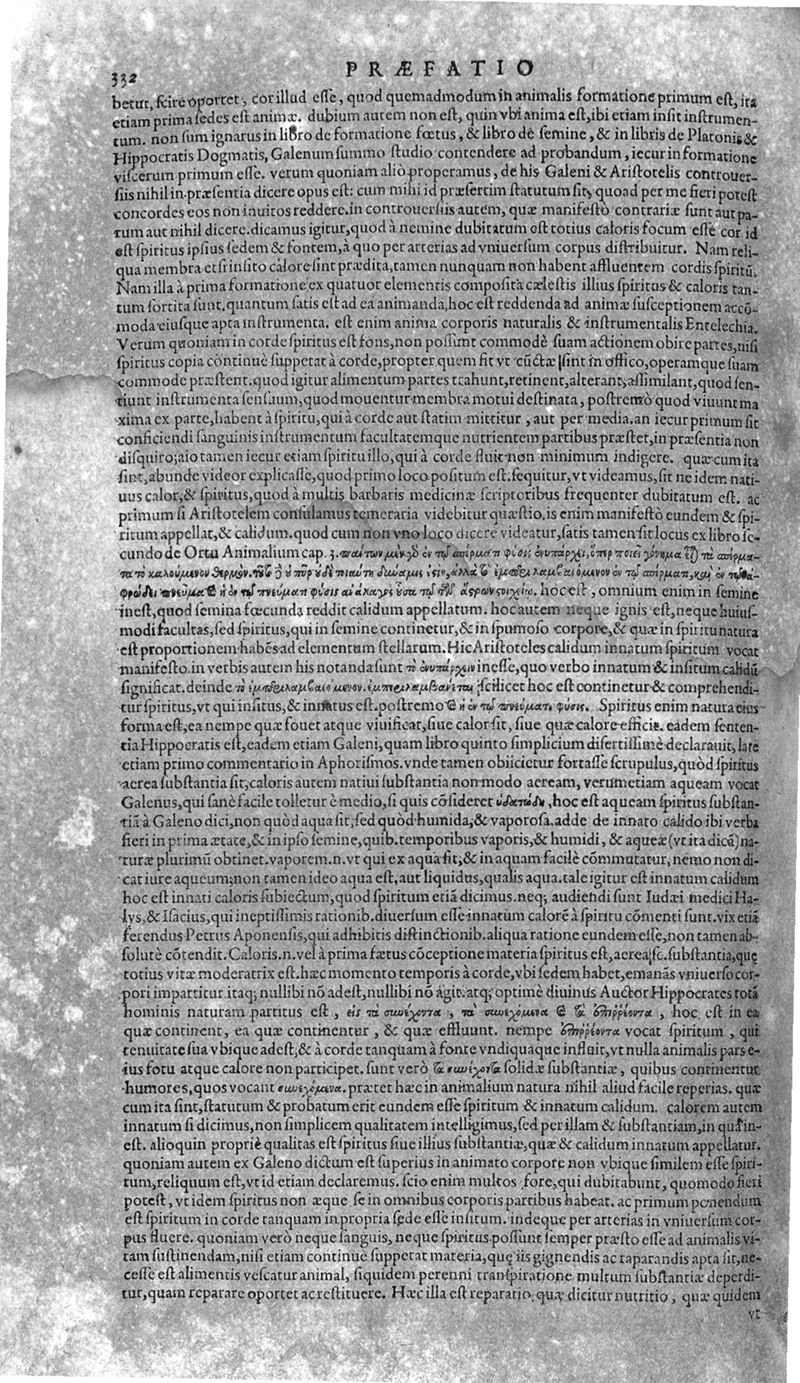 332 PRÆFATIO
betur, scire oportet, cor illud esse, quod quemadmodum in animalis formatione primum est, ita
etiam prima sedes est animæ. dubium autem non est, quin vbi anima est, ibi etiam insit instrumen-
tum. non sum ignarus in libro de formatione fœtus, & libro de semine, & in libris de Platonis &
Hippocratis Dogmatis, Galenum summo studio contendere ad probandum, iecur in formatione
viscerum primum esse. verum quoniam aliò properamus, de his Galeni & Aristotelis controuer-
siis nihil in præsentia dicere opus est: cum mihi id præsertim statutum sit, quoad per me fieri potest
concordes eos non inuitos reddere. in controuersiis autem, quæ manifestò contrariæ sunt aut pa-
rum aut nihil dicere. dicamus igitur, quod à nemine dubitatum est totius caloris focum esse cor id
est spiritus ipsius sedem & fontem, à quo per arterias ad vniuersum corpus distribuitur. Nam reli-
qua membra etsi insito calore sint prædita, tamen nunquam non habent affluentem cordis spiritũ.
Nam illa à prima formatione ex quatuor elementis composita cælestis illius spiritus & caloris tan-
tum sortita sunt, quantum satis est ad ea animanda, hoc est reddenda ad animæ susceptionem accõ-
moda eiusque apta instrumenta. est enim anima corporis naturalis & instrumentalis Entelechia.
Verum quoniam in corde spiritus est fons, non possunt commodè suam actionem obire partes, nisi
spiritus copia continuè suppetat à corde, propter quem fit vt cũctæ sint in offico, operamque suam
commode præstent. quod igitur alimentum partes trahunt, retinent, alterant, assimilant, quod sen-
tiunt instrumenta sensuum, quod mouentur membra motui destinata, postremò quod viuunt ma
xima ex parte, habent à spiritu, qui à corde aut statim mittitur, aut per media. an iecur primum sit
conficiendi sanguinis instrumentum facultatemque nutrientem partibus præstet, in præsentia non
disquiro; aio tamen iecur etiam spiritu illo, qui à corde fluit non minimum indigere. quæ cum ita
sint, abunde videor explicasse, quod primo loco positum est. sequitur, vt videamus, sit ne idem nati-
uus calor, & spiritus, quod à multis barbaris medicinæ scriptoribus frequenter dubitatum est. ac
primum si Aristotelem consulamus temeraria videbitur quæstio. is enim manifestò eundem & spi-
ritum appellat, & calidum. quod cum non vno loco dicere videatur, satis tamen sit locus ex libro se-
cundo de Ortu Animalium cap. 3.
hoc est, omnium enim in semine
inest, quod semina fœcunda reddit calidum appellatum. hoc autem neque ignis est, neque huius-
modi facultas, sed spiritus, qui in semine continetur, & in spumoso corpore, & quæ in spiritu natura
est proportionem habens ad elementum stellarum. Hic Aristoteles calidum innatum spiritum vocat
manifesto. in verbis autem his notanda sunt τὸ ἐνυπάρχειν inesse, quo verbo innatum & insitum calidũ
significat. deinde scilicet hoc est continetur & comprehendi-
tur spiritus, vt qui insitus, & innatus est. postremo ἡ ἐν τῷ πνεύματι φύσις. Spiritus enim natura eius
forma est, ea nempe quæ fouet atque viuificat, siue calor sit, siue quæ calore efficit. eadem senten-
tia Hippocratis est, eadem etiam Galeni, quam libro quinto simplicium disertissimè declarauit, late
etiam primo commentario in Aphorismos. vnde tamen obiicietur fortasse scrupulus, quòd spiritus
aerea substantia sit, caloris autem natiui substantia non modo aeream, verum etiam aqueam vocat
Galenus, qui sanè facile tolletur è medio, si quis cõsideret ὑδατώδη, hoc est aqueam spiritus substan-
tiã à Galeno dici, non quòd aqua sit, sed quòd humida, & vaporosa. adde de innato calido ibi verba
fieri in prima ætate, & in ipso semine, quib. temporibus vaporis, & humidi, & aqueæ (vt ita dicã) na-
turæ plurimũ obtinet. vaporem. n. vt qui ex aqua fit, & in aquam facilè cõmutatur, nemo non di-
cat iure aqueum; non tamen ideo aqua est, aut liquidus, qualis aqua. tale igitur est innatum calidum
hoc est innati caloris subiectum, quod spiritum etiã dicimus. neq; audiendi sunt Iudæi medici Ha-
lys, & Isacius, qui ineptissimis rationib. diuersum esse innatum calorẽ à spiritu cõmenti sunt. vix etiã
ferendus Petrus Aponensis, qui adhibitis distinctionib. aliqua ratione eundem esse, non tamen ab-
solutè cõtendit. Caloris. n. vel à prima fœtus cõceptione materia spiritus est, aerea sc. substantia, quę
totius vitæ moderatrix est. hæc momento temporis à corde, vbi sedem habet, emanãs vniuerso cor-
pori impartitur itaq; nullibi nõ adest, nullibi nõ agit. atq; optimè diuinus Auctor Hippocrates totã
hominis naturam partitus est, εἰς τὰ συνέχοντα, τὰ συνεχόμενα hoc est in ea
quæ continent, ea quæ continentur, & quæ effluunt. nempe vocat spiritum, qui
tenuitate sua vbique adest, & à corde tanquam à fonte vndiquaque influit, vt nulla animalis pars e-
ius fotu atque calore non participet. sunt verò τὰ συνέχοντα solidæ substantiæ, quibus continentur
humores, quos vocant συνεχόμενα. præter hæc in animalium natura nihil aliud facile reperias. quæ
cum ita sint, statutum & probatum erit eundem esse spiritum & innatum calidum. calorem autem
innatum si dicimus, non simplicem qualitatem intelligimus, sed per illam & substantiam, in qua in-
est. alioquin propriè qualitas est spiritus siue illius substantiæ, quæ & calidum innatum appellatur.
quoniam autem ex Galeno dictum est superius in animato corpore non vbique similem esse spiri-
tum, reliquum est, vt id etiam declaremus. scio enim multos fore, qui dubitabunt, quomodo fieri
potest, vt idem spiritus non æque se in omnibus corporis partibus habeat. ac primum ponendum
est spiritum in corde tanquam in propria sede esse insitum. indeque per arterias in vniuersum cor-
pus fluere. quoniam verò neque sanguis, neque spiritus possunt semper præsto esse ad animalis vi-
tam sustinendam, nisi etiam continuè suppetat materia, quę iis gignendis ac raparandis apta sit, ne-
cesse est alimentis vescatur animal, siquidem perenni transpiratione multum substantiæ deperdi-
tur, quam reparare oportet ac restituere. Hæc illa est reparatio, quæ dicitur nutritio, quæ quidem
vt